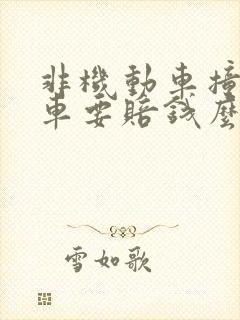 非機動車撞
車要賠錢麼
雪如歌